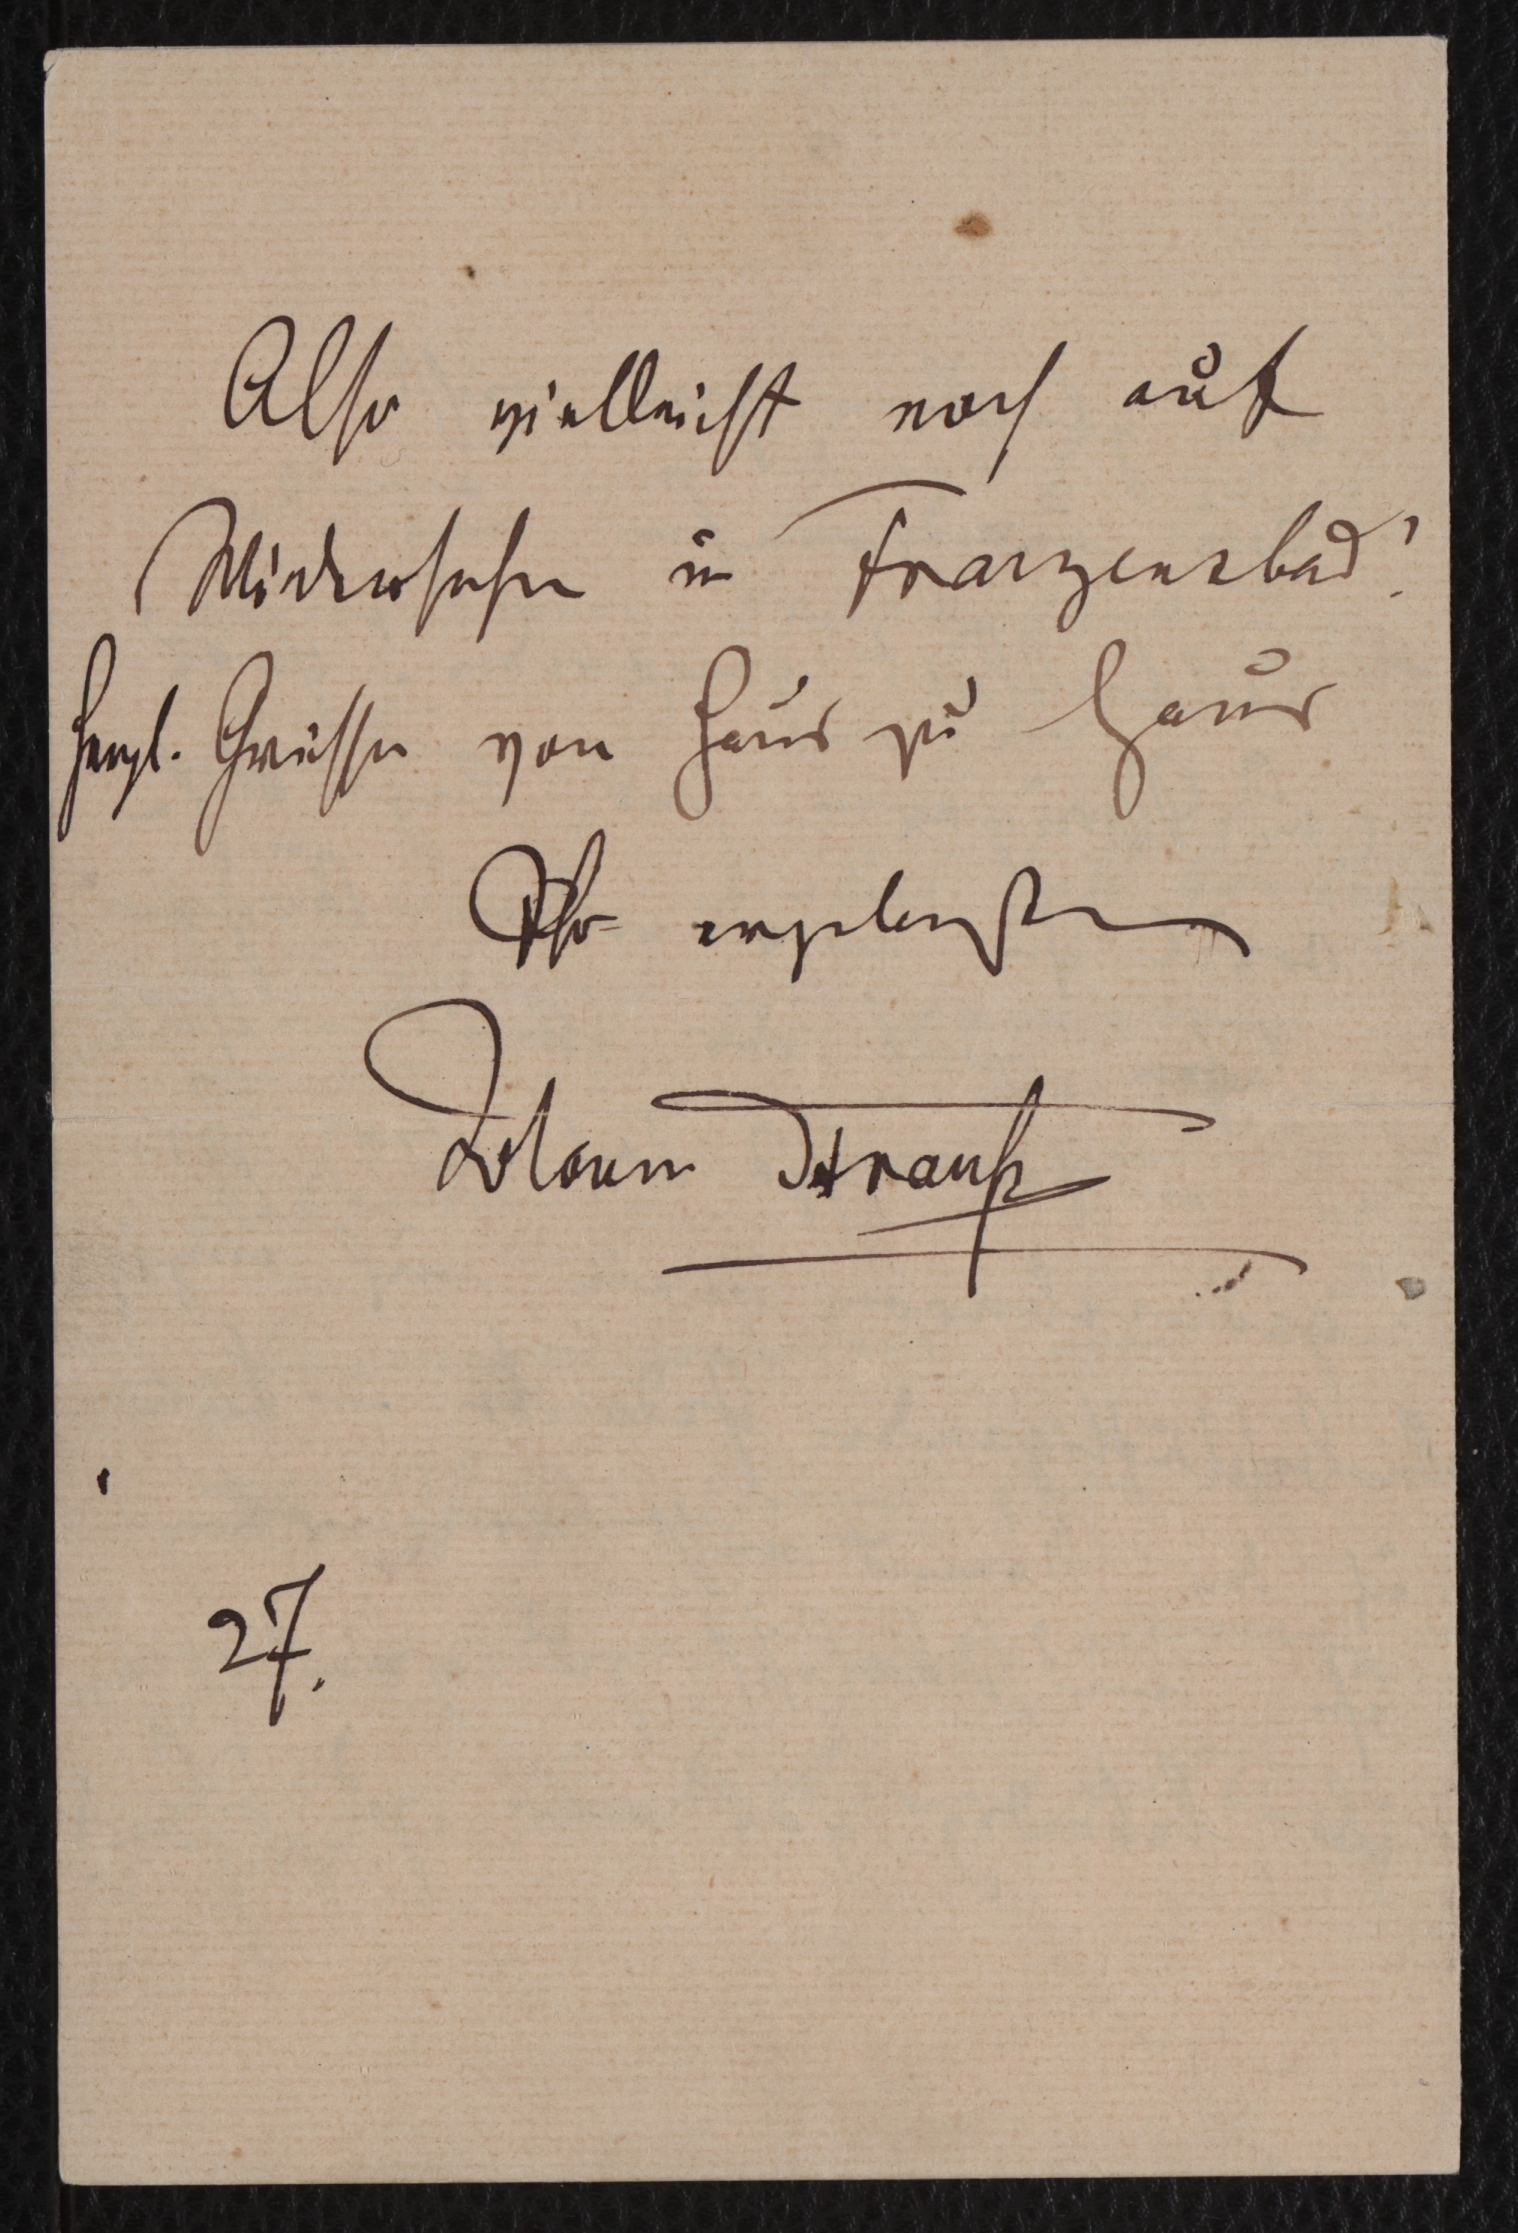 Also vielleicht noch auf
Wiedersehen in Franzensbad!
Herzl. Grüsse von Haus zu Haus
Ihr ergebenster
Johann Strauß
27.